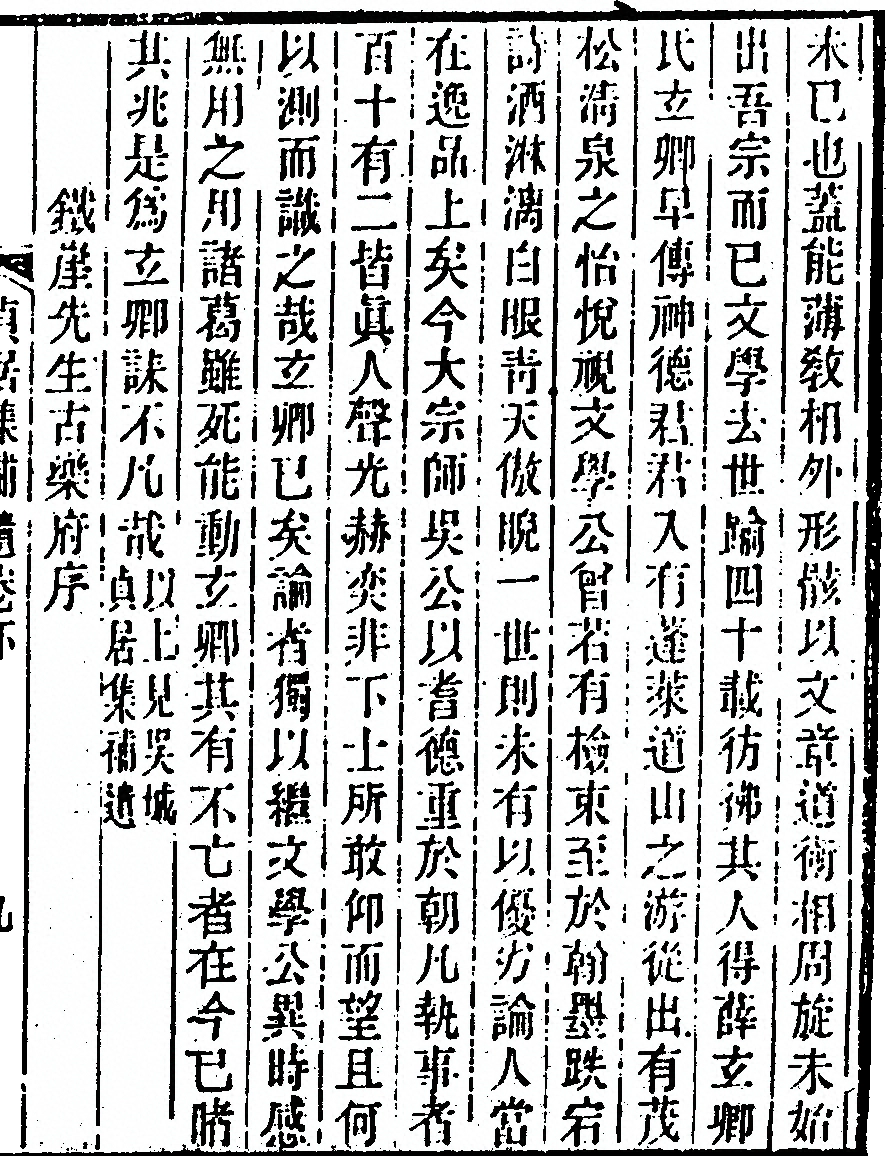 未已也蓋能薄敎相外形骸以文章道術相周旋未始
出吾宗而已文學去世踰四十載彷彿其人得薛玄卿
氏玄卿早傳神德君君入有蓬萊道山之游從出有茂
松淸泉之怡悅視文學公曾若有檢束至於翰墨跌宕
詩酒淋漓白眼靑天傲睨一世則未有以優劣論人當
在逸品上矣今大宗師吳公以耆德重於朝凡執事者
百十有二皆眞人聲光赫奕非下士所敢仰而望且何
以測而識之哉玄卿已矣論者獨以繼文學公異時感
無用之用諸葛雖死能動玄卿其有不亡者在今已睹
其兆是爲玄卿誄不凡哉以上見吳城貞居集補遺
鐵崖先生古樂府序
貞居集補遺卷下
九